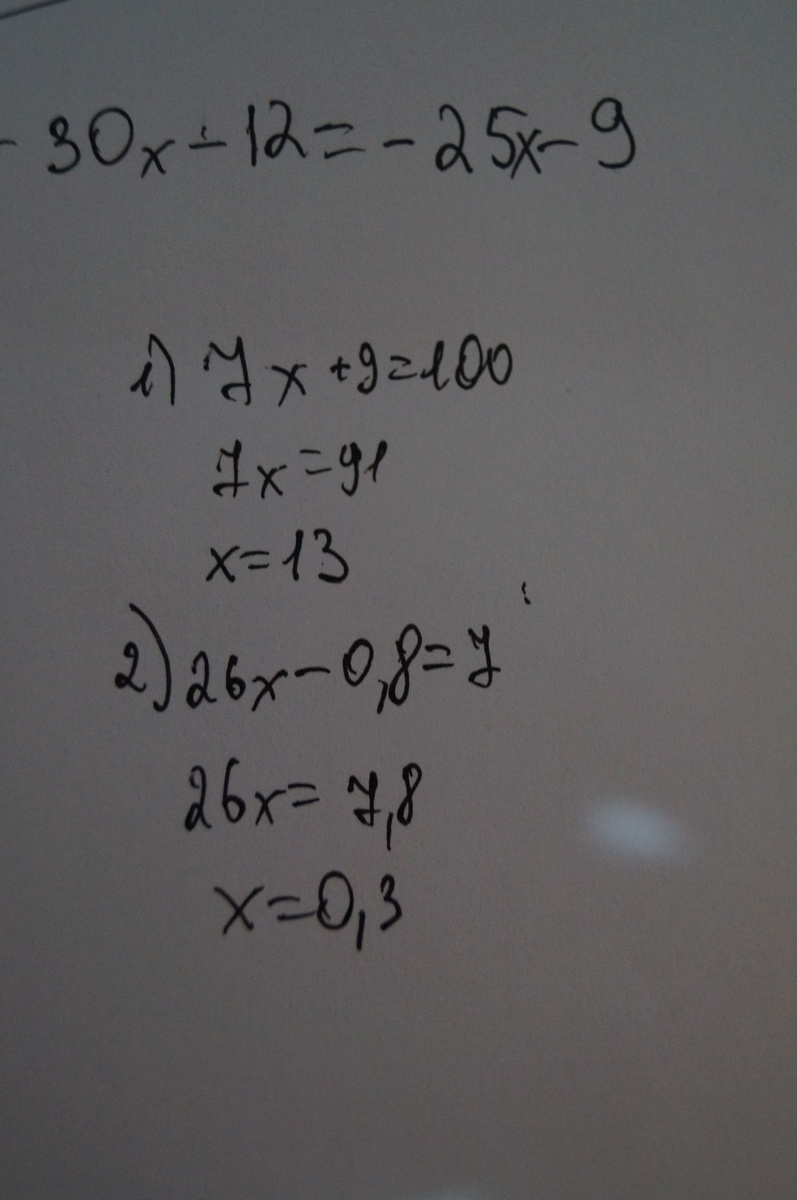 - 30x - 12 = - 25x - 9
1) 7x + 9 = 100
7x = 91
x = 13
2) 26x - 0,8 = 7
26x = 7,8
x = 0,3